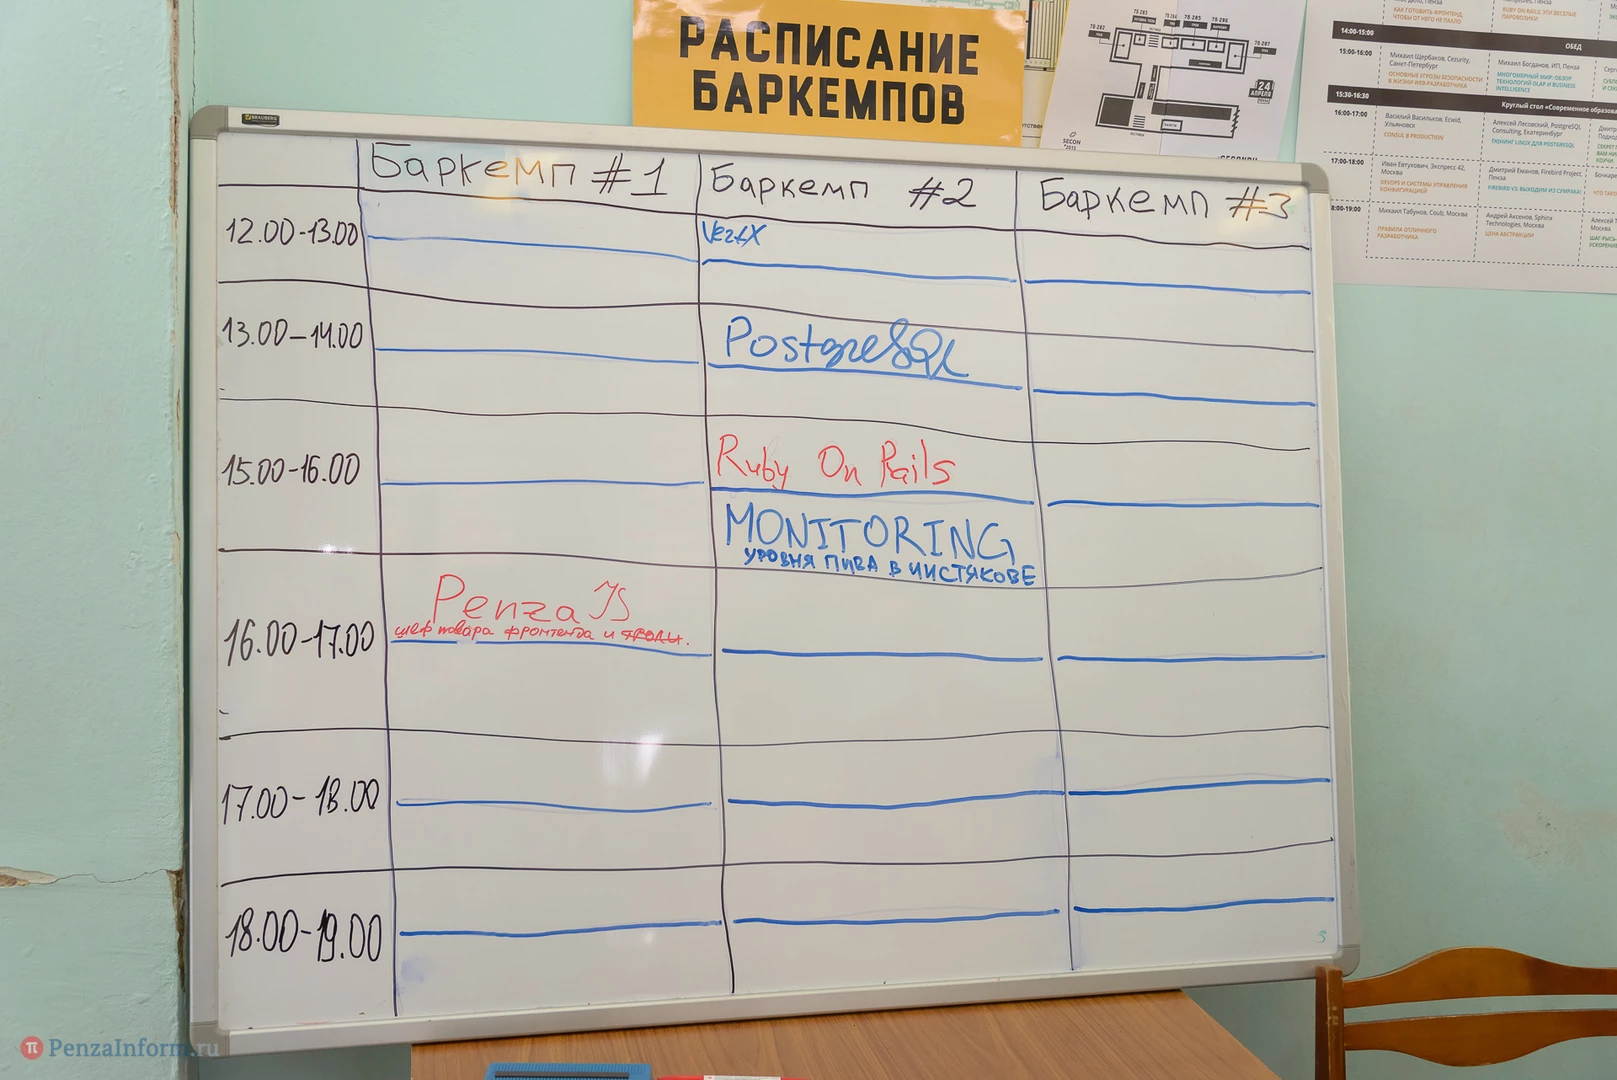 РАСПИСАНИЕ
БАРКЕМПОВ
BRAUBERG
75-282
75-283
75-284
75-285
75-286
75-287
24
АПРЕЛЯ
SECON
КАК ГОТОВИТЬ ФРОНТЕНД,
ЧТОБЫ ОТ НЕГО НЕ ПАХЛО
RUBY ON RAILS: ЭТИ ВЕСЕЛЫЕ
ПАРОВОЗИКИ
14:00-15:00
ОБЕД
15:00-16:00
Михаил Щербаков, Cezurity,
Санкт-Петербург
ОСНОВНЫЕ УГРОЗЫ БЕЗОПАСНОСТИ
В ЖИЗНИ WEB-РАЗРАБОТЧИКА
Михаил Богданов, ИП, Пенза
МНОГОМЕРНЫЙ МИР: ОБЗОР
ТЕХНОЛОГИЙ OLAP И BUSINESS
INTELLIGENCE
15:30-16:30
Круглый стол «Современное образова
16:00-17:00
Василий Васильков, Ecwid,
Ульяновск
CONSUL В PRODUCTION
Алексей Лесовский, PostgreSQL
Consulting, Екатеринбург
ТЮНИНГ LINUX ДЛЯ POSTGRESQL
17:00-18:00
Иван Евтухович, Экспресс 42,
Москва
DEVOPS И СИСТЕМЫ УПРАВЛЕНИЯ
КОНФИГУРАЦИЕЙ
Дмитрий Еманов, Firebird Project,
Пенза
FIREBIRD V3: ВЫХОДИМ ИЗ СУМРАКА!
8:00-19:00
Михаил Табунов, Coub, Москва
ПРАВИЛА ОТЛИЧНОГО
РАЗРАБОТЧИКА
Андрей Аксенов, Sphinx
Technologies, Москва
ЦЕНА АБСТРАКЦИИ
Баркемп #1
Баркемп #2
Баркемп #3
12.00-13.00
VertX
13.00-14.00
PostgreSQL
15.00-16.00
Ruby On Rails
MONITORING
УРОВНЯ ПИВА В ЧИСТЯКОВЕ
16.00-17.00
PenzaJS
фронтенда и
17.00-18.00
18.00-19.00
PenzaInform.ru